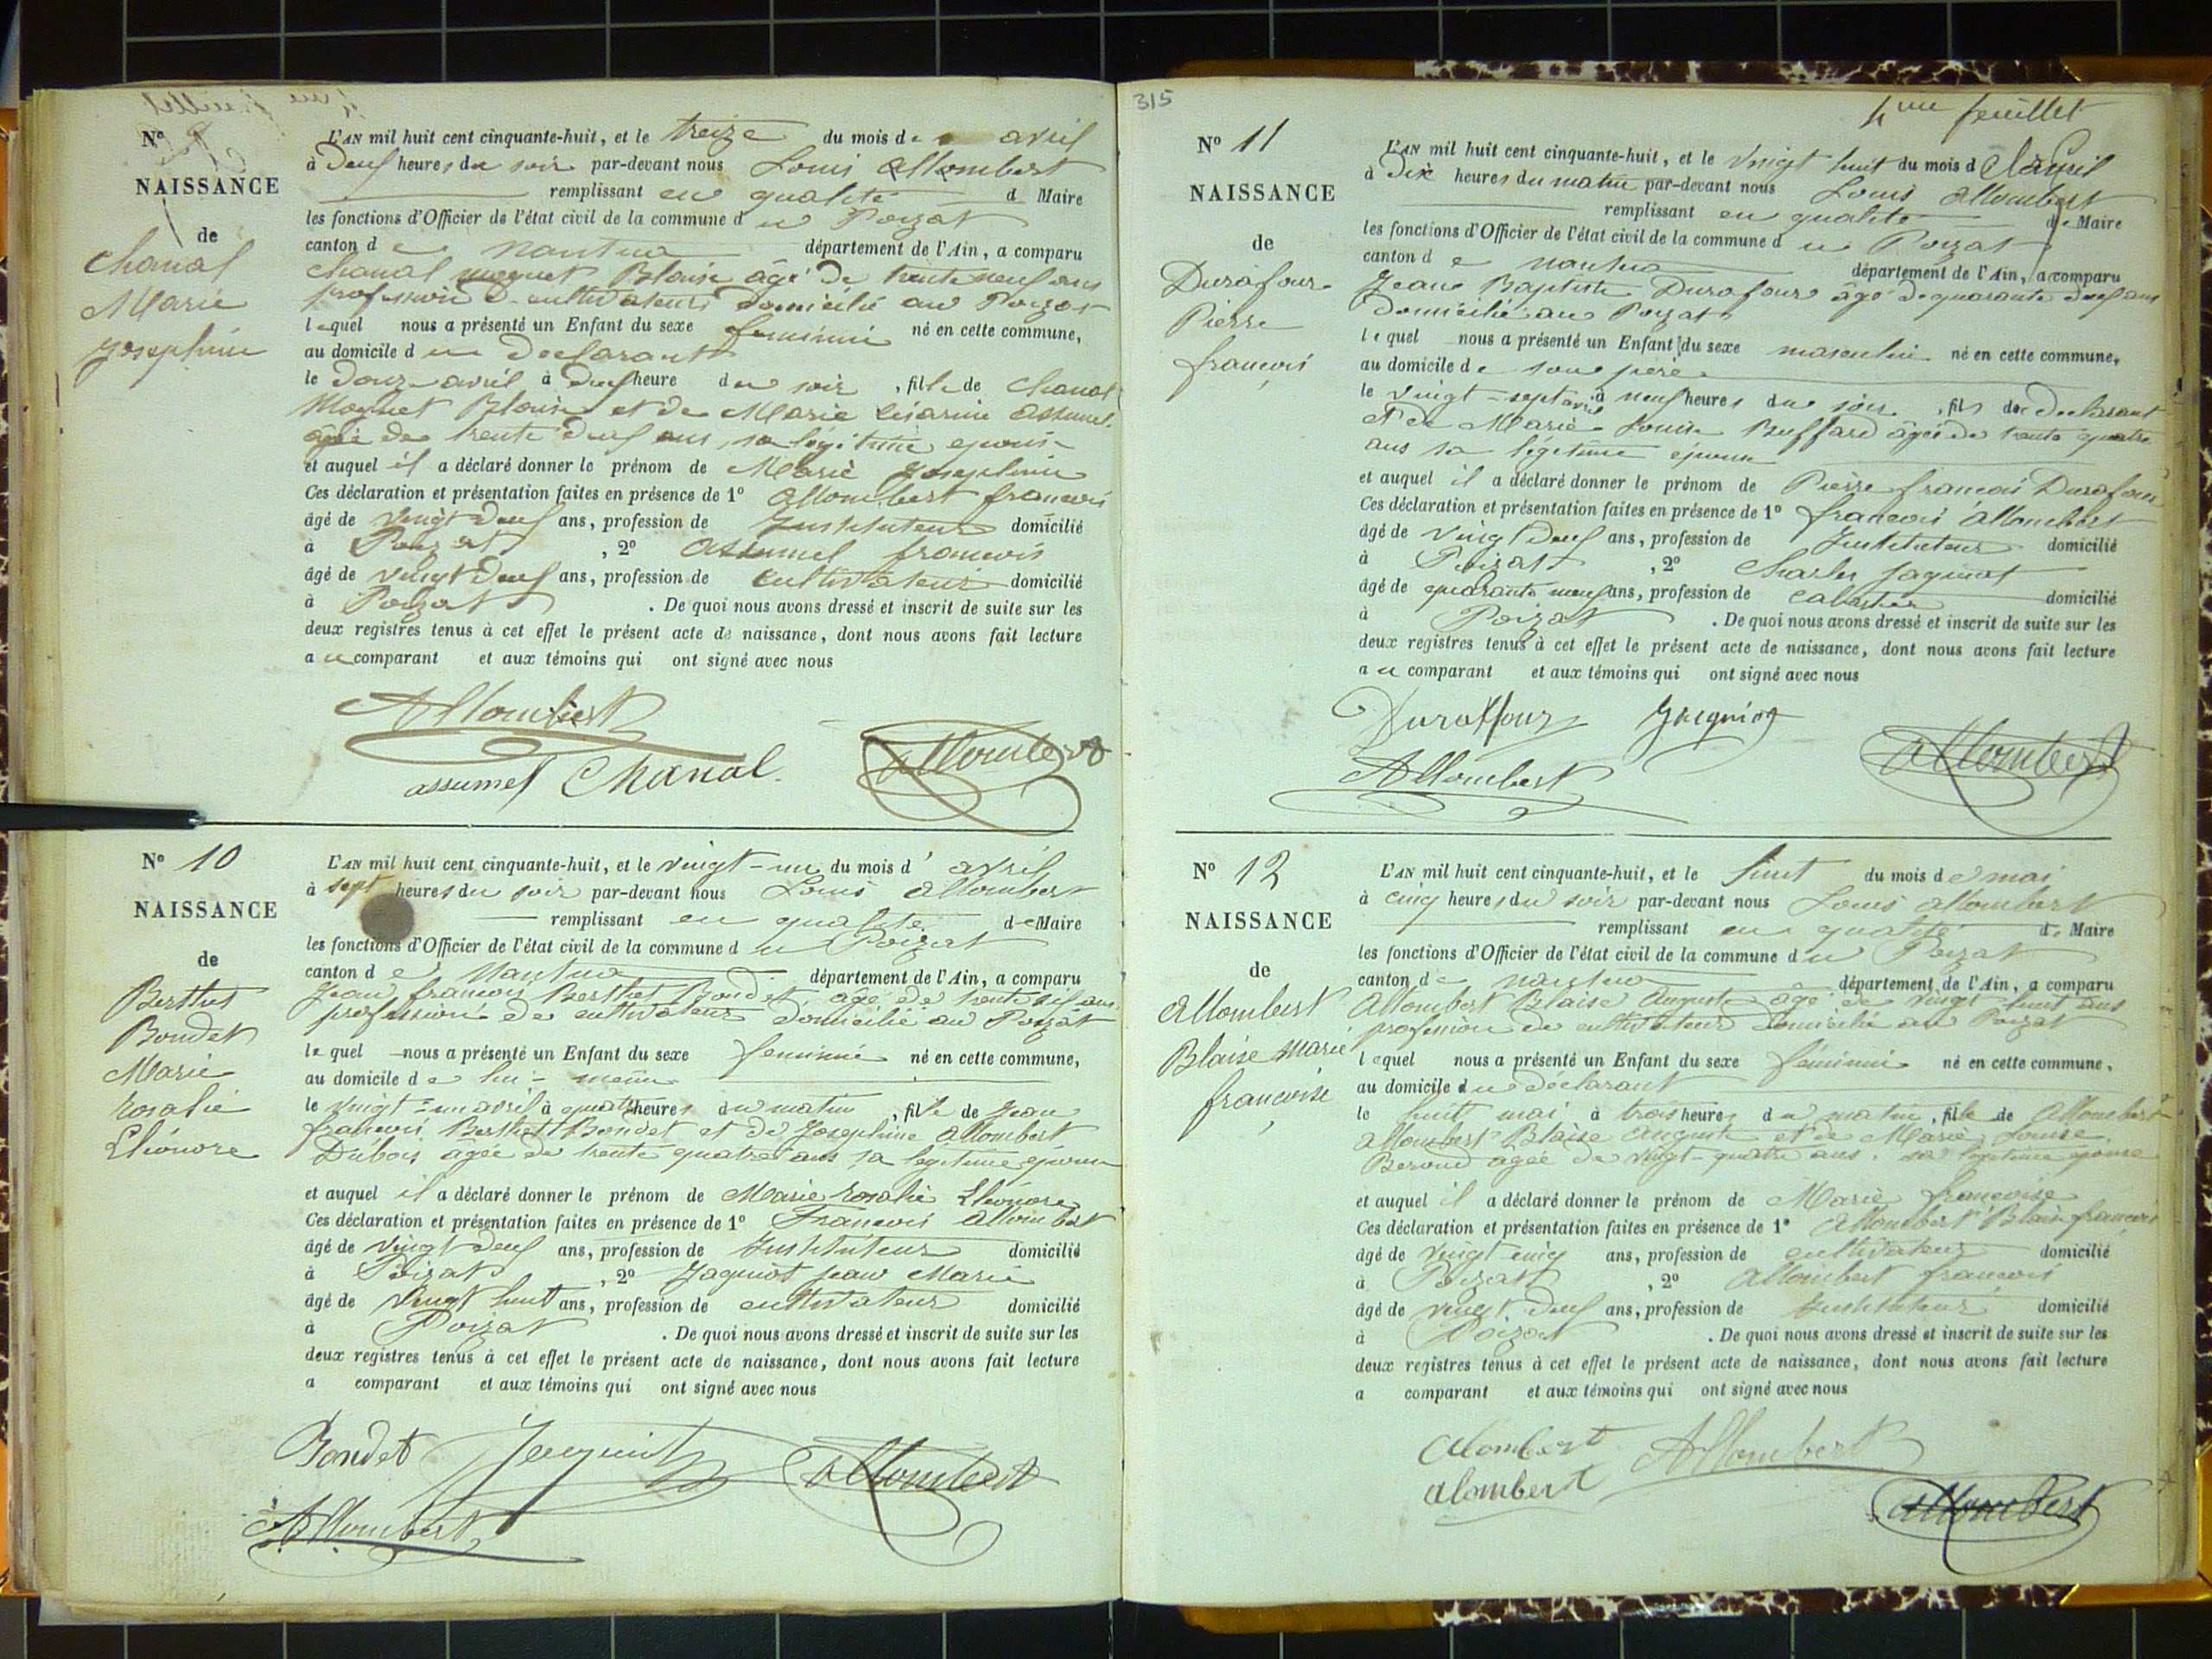 N°
NAISSANCE
de
Chanal
Marie
Josephine
L'AN mil huit cent cinquante-huit, et le treize du mois de avril
à deux heures du soir par-devant nous Louis Allombert
remplissant en qualité d Maire
les fonctions d'Officier de l'état civil de la commune du Poizat
canton de Nantua département de l'Ain, a comparu
Chanal moquet Blaise âgé de trente neuf ans
profession de cultivateur domicilié au Poizat
lequel nous a présenté un Enfant du sexe feminin né en cette commune,
au domicile du declarant
le douze avril à deux heure du soir, fille de Chanal
Moquet Blaise et de Marie Césarine Assumel
agée de trente deux ans, sa légitime epouse
et auquel il a déclaré donner le prénom de Marie Josephine
Ces déclaration et présentation faites en présence de 1° Allombert francois
âgé de vingt deux ans, profession de Instituteur domicilié
à Poizat, 2° Assumel francois
âgé de vingt deux ans, profession de Cultivateur domicilié
à Poizat. De quoi nous avons dressé et inscrit de suite sur les
deux registres tenus à cet effet le présent acte de naissance, dont nous avons fait lecture
au comparant et aux témoins qui ont signé avec nous
Allombert
assumel Chanal. allombert
N° 10
NAISSANCE
de
Berthet
Bondet
Marie
rosalie
Eléonore
L'AN mil huit cent cinquante-huit, et le vingt-un du mois d' avril
à sept heures du soir par-devant nous Louis allombert
remplissant en qualité de Maire
les fonctions d'Officier de l'état civil de la commune du Poizat
canton de Nantua département de l'Ain, a comparu
Jean francois Berthet Bondet âgé de trente six ans
profession de cultivateur domicilié au Poizat
lequel nous a présenté un Enfant du sexe feminin né en cette commune,
au domicile de lui-même
le vingt-un avril à quatre heures du matin, fille de Jean
francois Berthet Bondet et de Josephine allombert
Dubois agée de trente quatre ans sa legitime epouse
et auquel il a déclaré donner le prénom de Marie rosalie Eléonore
Ces déclaration et présentation faites en présence de 1° Francois Allombert
âgé de vingt deux ans, profession de Instituteur domicilié
à Poizat, 2° Jaquiot jean Marie
âgé de vingt huit ans, profession de cultivateur domicilié
à Poizat. De quoi nous avons dressé et inscrit de suite sur les
deux registres tenus à cet effet le présent acte de naissance, dont nous avons fait lecture
a comparant et aux témoins qui ont signé avec nous
Bondet Jaquiot allombert
Allombert
315
4me feuillet
N° 11
NAISSANCE
de
Durafour
Pierre
francois
L'AN mil huit cent cinquante-huit, et le vingt huit du mois d'avril
à dix heures du matin par-devant nous Louis allombert
remplissant en qualité de Maire
les fonctions d'Officier de l'état civil de la commune du Poizat
canton de nantua département de l'Ain, a comparu
Jean Baptiste Durafour âgé de quarante deux ans
domicilié au Poizat
lequel nous a présenté un Enfant du sexe masculin né en cette commune,
au domicile de son père
le vingt-sept avril à neuf heures du soir, fils du declarant
et de Marie Louise Buffard âgée de trente quatre
ans sa légitime épouse
et auquel il a déclaré donner le prénom de Pierre francois Durafour
Ces déclaration et présentation faites en présence de 1° francois allombert
âgé de vingt deux ans, profession de Instituteur domicilié
à Poizat, 2° Charles Jaquiot
âgé de quarante neuf ans, profession de cabartier domicilié
à Poizat. De quoi nous avons dressé et inscrit de suite sur les
deux registres tenus à cet effet le présent acte de naissance, dont nous avons fait lecture
au comparant et aux témoins qui ont signé avec nous
Duraffour Jaquiot
Allombert allombert
N° 12
NAISSANCE
de
Allombert
Blaise Marie
francoise
L'AN mil huit cent cinquante-huit, et le huit du mois de mai
à cinq heures du soir par-devant nous Louis allombert
remplissant en qualité de Maire
les fonctions d'Officier de l'état civil de la commune du Poizat
canton de nantua département de l'Ain, a comparu
Allombert Blaise Auguste âgé de vingt huit ans
profession de cultivateur domicilié au Poizat
lequel nous a présenté un Enfant du sexe féminin né en cette commune,
au domicile du déclarant
le huit mai à trois heures du matin, fille de Allombert
allombert Blaise Auguste et de Marie Louise
Beroud agée de vingt-quatre ans. sa legitime epouse
et auquel il a déclaré donner le prénom de Marie francoise
Ces déclaration et présentation faites en présence de 1° Allombert Blaise francois
âgé de vingt-cinq ans, profession de cultivateur domicilié
à Poizat, 2° allombert francois
âgé de vingt deux ans, profession de Instituteur domicilié
à Poizat. De quoi nous avons dressé et inscrit de suite sur les
deux registres tenus à cet effet le présent acte de naissance, dont nous avons fait lecture
a comparant et aux témoins qui ont signé avec nous
alombert Allombert
alombert
allombert